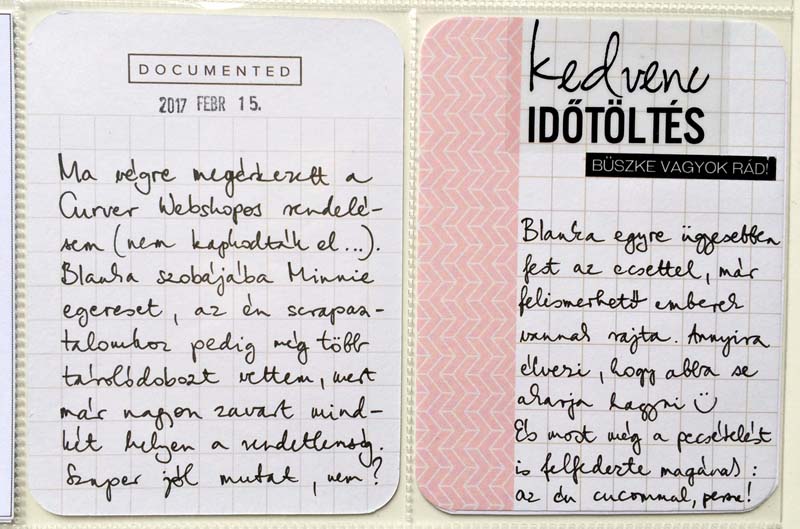 DOCUMENTED
2017 FEBR 15.
Ma végre megérkezett a
Curver Webshopos rendelé-
sem (nem kapkodták el...).
Blanka szobájába Minnie
egeret, az én scrapasz-
talomhoz pedig még több
tárolódobozt vettem, mert
már nagyon zavart mind-
két helyen a rendetlenség.
Szuper jól mutat, nem?
kedvenc
IDŐTÖLTÉS
BÜSZKE VAGYOK RÁD!
Blanka egyre ügyesebben
fest az ecsettel, már
felismerhető emberek
vannak rajta. Annyira
élvezi, hogy abba se
akarja hagyni ☺
És most még a pecsételést
is felfedezte magának:
az én cuccommal, persze!